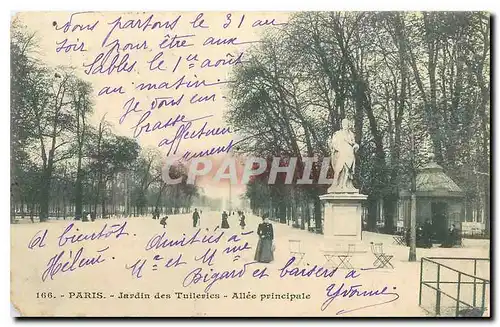 Nous partons le 31 au
soir pour être aux
Sables le 1er août
au matin.
Je vous em-
brasse
affectueu
sement
à bientôt
Hélène.
Amitiés à
Mr et Mme
Bigard et baisers à
Yvonne
CPARAMA
166. - PARIS. - Jardin des Tuileries - Allée principale